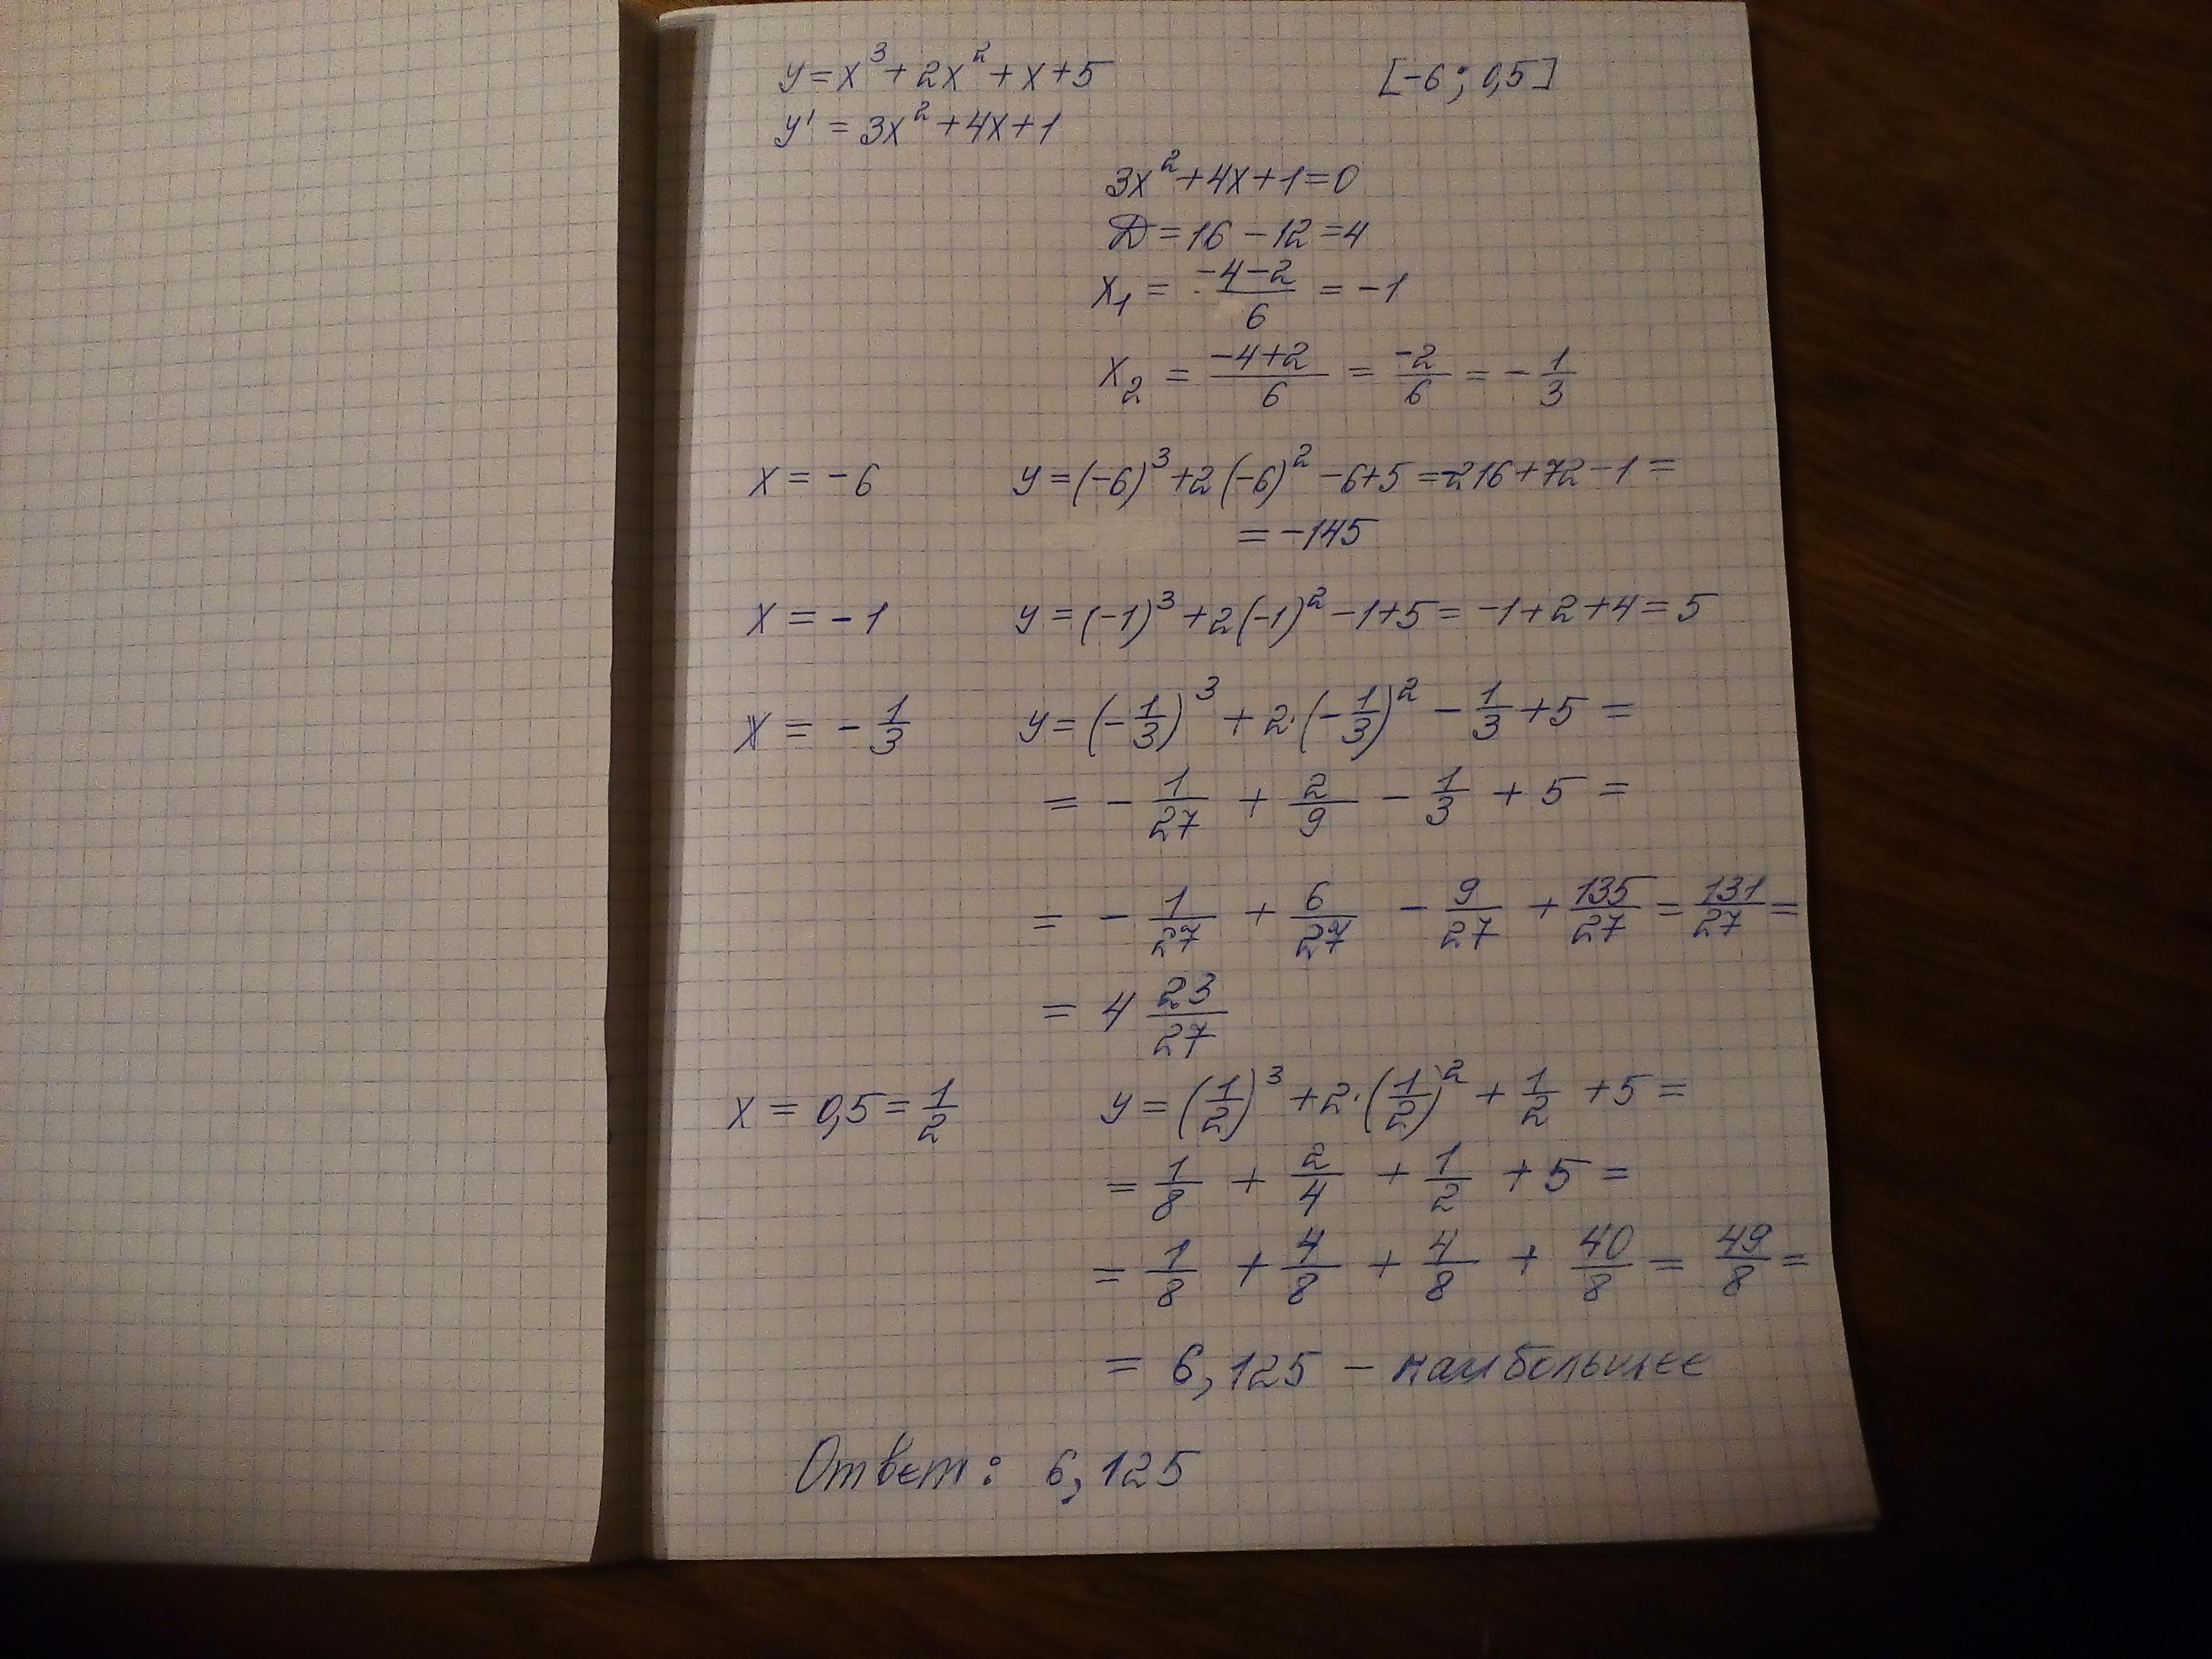 y = x³ + 2x² + x + 5 [-6; 0,5]
y' = 3x² + 4x + 1
3x² + 4x + 1 = 0
Д = 16 - 12 = 4
x₁ = (-4-2)/6 = -1
x₂ = (-4+2)/6 = -2/6 = -1/3
x = -6 y = (-6)³ + 2(-6)² - 6 + 5 = -216 + 72 - 1 =
= -145
x = -1 y = (-1)³ + 2(-1)² - 1 + 5 = -1 + 2 + 4 = 5
x = -1/3 y = (-1/3)³ + 2·(-1/3)² - 1/3 + 5 =
= -1/27 + 2/9 - 1/3 + 5 =
= -1/27 + 6/27 - 9/27 + 135/27 = 131/27 =
= 4 23/27
x = 0,5 = 1/2 y = (1/2)³ + 2·(1/2)² + 1/2 + 5 =
= 1/8 + 2/4 + 1/2 + 5 =
= 1/8 + 4/8 + 4/8 + 40/8 = 49/8 =
= 6,125 - наибольшее
Ответ: 6,125